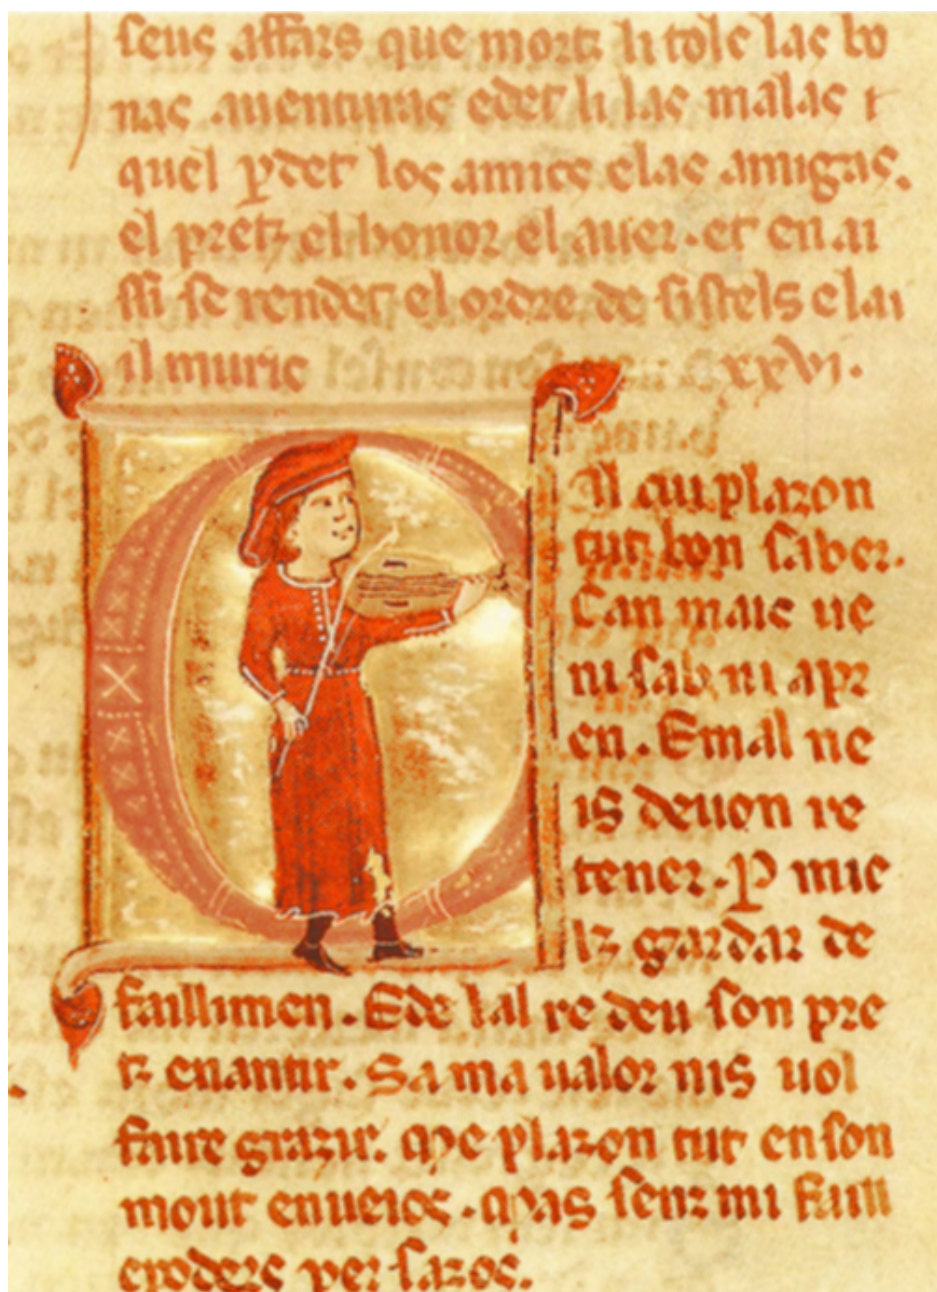 seus affars que mortz li tolc las bo
nas auenturas edet li las malas τ
quel ꝑdet los amics elas amigas.
el pretz el honor el auer. et en ai
ssi se rendet el ordre de sistels e lai
il muric xxvi.
Al cui plazon
tut bon saber.
Can mais ue
ni sab ni apr
en. E mal ne
is deuon re
tener. P mie
lz gardar de
faillimen. E de lal re deu son pre
tz enantir. Sa ma ualor nis uol
faire grazir. plazon tut en son
mout enueios. senz mi faill
per sazos.